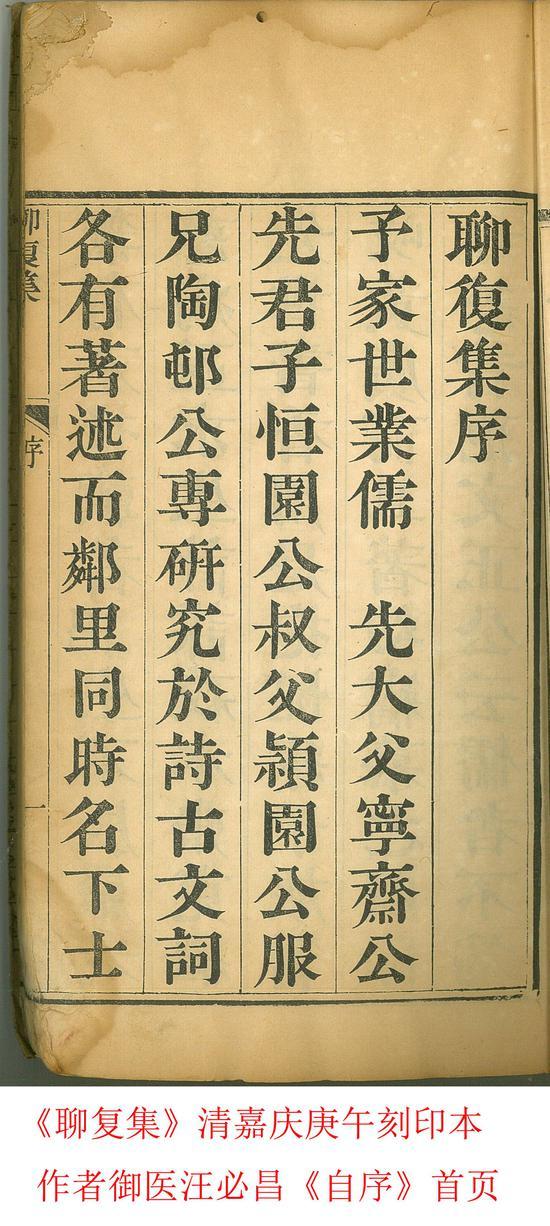 聊復集序
予家世業儒　先大父寧齋公
先君子恒園公叔父潁園公服
兄陶邨公專研究於詩古文詞
各有著述而鄰里同時名下士
聊復集
序
一
《聊复集》清嘉庆庚午刻印本
作者御医汪必昌《自序》首页